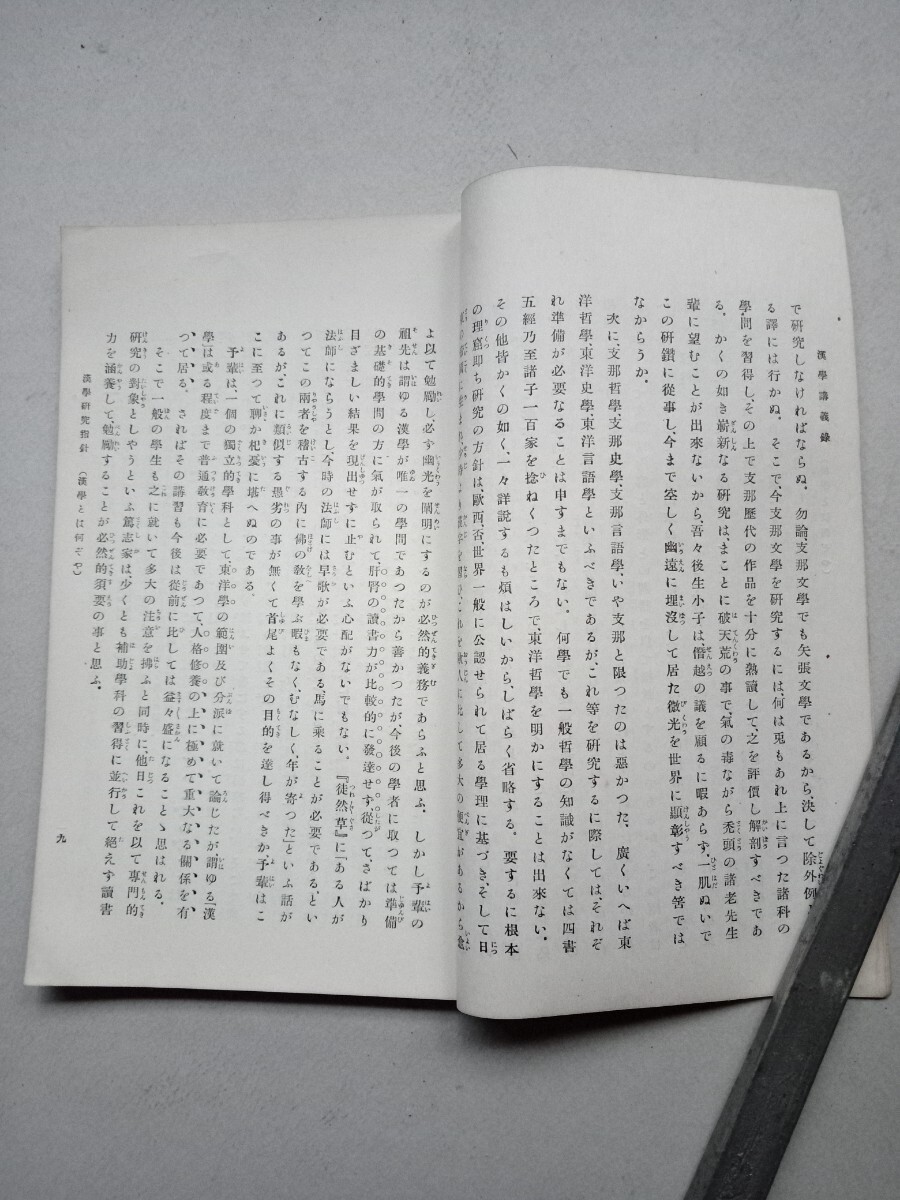 漢學講義錄
で研究しなければならぬ。勿論、支那文學でも矢張文學であるから、決して除外例
る譯には行かぬ。そこで、今支那文學を研究するには、何は兎もあれ上に言つた諸科の
學問を習得し、その上で支那歷代の作品を十分に熟讀して、之を評價し解剖すべきであ
る。かくの如き嶄新なる研究は、まことに破天荒の事で、氣の毒ながら禿頭の諸老先生
輩に望むことが出來ないから、吾々後生小子は、僭越の議を顧るに暇あらず、一肌ぬいで
この研鑽に從事し、今まで空しく幽遠に埋沒して居た微光を世界に顯彰すべき筈では
なからうか。
次に、支那哲學、支那史學、支那言語學、いや支那と限つたのは惡かつた、廣くいへば東
洋哲學、東洋史學、東洋言語學といふべきであるが、これ等を研究するに際しては、それぞ
れ準備が必要なることは申すまでもない。何學でも一般哲學の知識がなくては四書
五經乃至諸子一百家を捻ねくつたところで、東洋哲學を明かにすることは出來ない。
その他皆かくの如く、一々詳說するも煩はしいから、しばらく省略する。要するに根本
の理窟卽ち硏究の方針は歐西、否、世界一般に公認せられて居る學理に基づき、そして日
よ以て勉勵し、必ず幽光を闡明にするのが必然的義務であらふと思ふ。しかし予輩の
祖先は謂ゆる漢學が唯一の學問であつたから善かつたが、今後の學者に取つては準備
の基礎的學問の方に氣が取られて肝腎の讀書力が比較的に發達せず、從つて、さばかり
目ざましい結果を現出せずに止むといふ心配がないでもない。『徒然草』に「ある人が
法師にならうとし、今時の法師には早歌が必要である、馬に乘ることが必要である、とい
つてこの兩者を稽古する內に佛の敎を學ぶ暇もなく、むなしく年が寄つた」といふ話が
あるが、これに類似する愚劣の事が無くて首尾よくその目的を達し得べきか予輩はこ
こに至つて聊か杞憂に堪へぬのである。
予輩は、一個の獨立的學科として東洋學の範圍及び分派に就いて論じたが、謂ゆる『漢
學』は或る程度まで普通敎育に必要であつて、人格修養の上に極めて重大なる關係を有
つて居る。さればその講習も今後は從前に比しては益々盛になることゝ思はれる。
そこで一般の學生も之に就いて多大の注意を拂ふと同時に、他日これを以て專門的
研究の對象としやうといふ篤志家は、少くとも補助學科の習得に並行して絕えず讀書
力を涵養して勉勵することが必然的須要の事と思ふ。
漢學硏究指針 (漢學とは何ぞや)
九